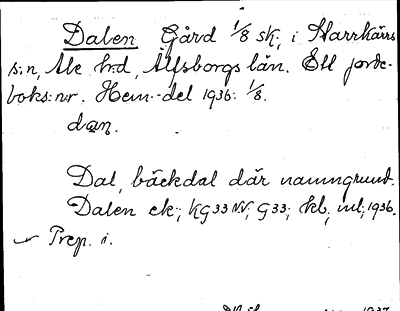 Dalen Gård 1/8 sk, i Starrkärrs
s:n, Ale h:d, Älfsborgs län. Ett jorde-
boks:nr. Hem.-del 1936: 1/8.
dan.
Dal, bäckdal där namngrund.
Dalen ek; KG33NV; G33; kb; ml; 1936.
Prep. i.
1937